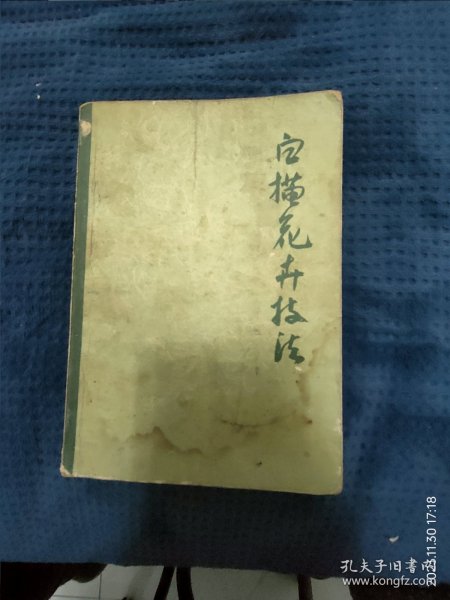 白描花卉技法
2023.11.30 17:18
孔夫子旧书网
www.kongfz.com